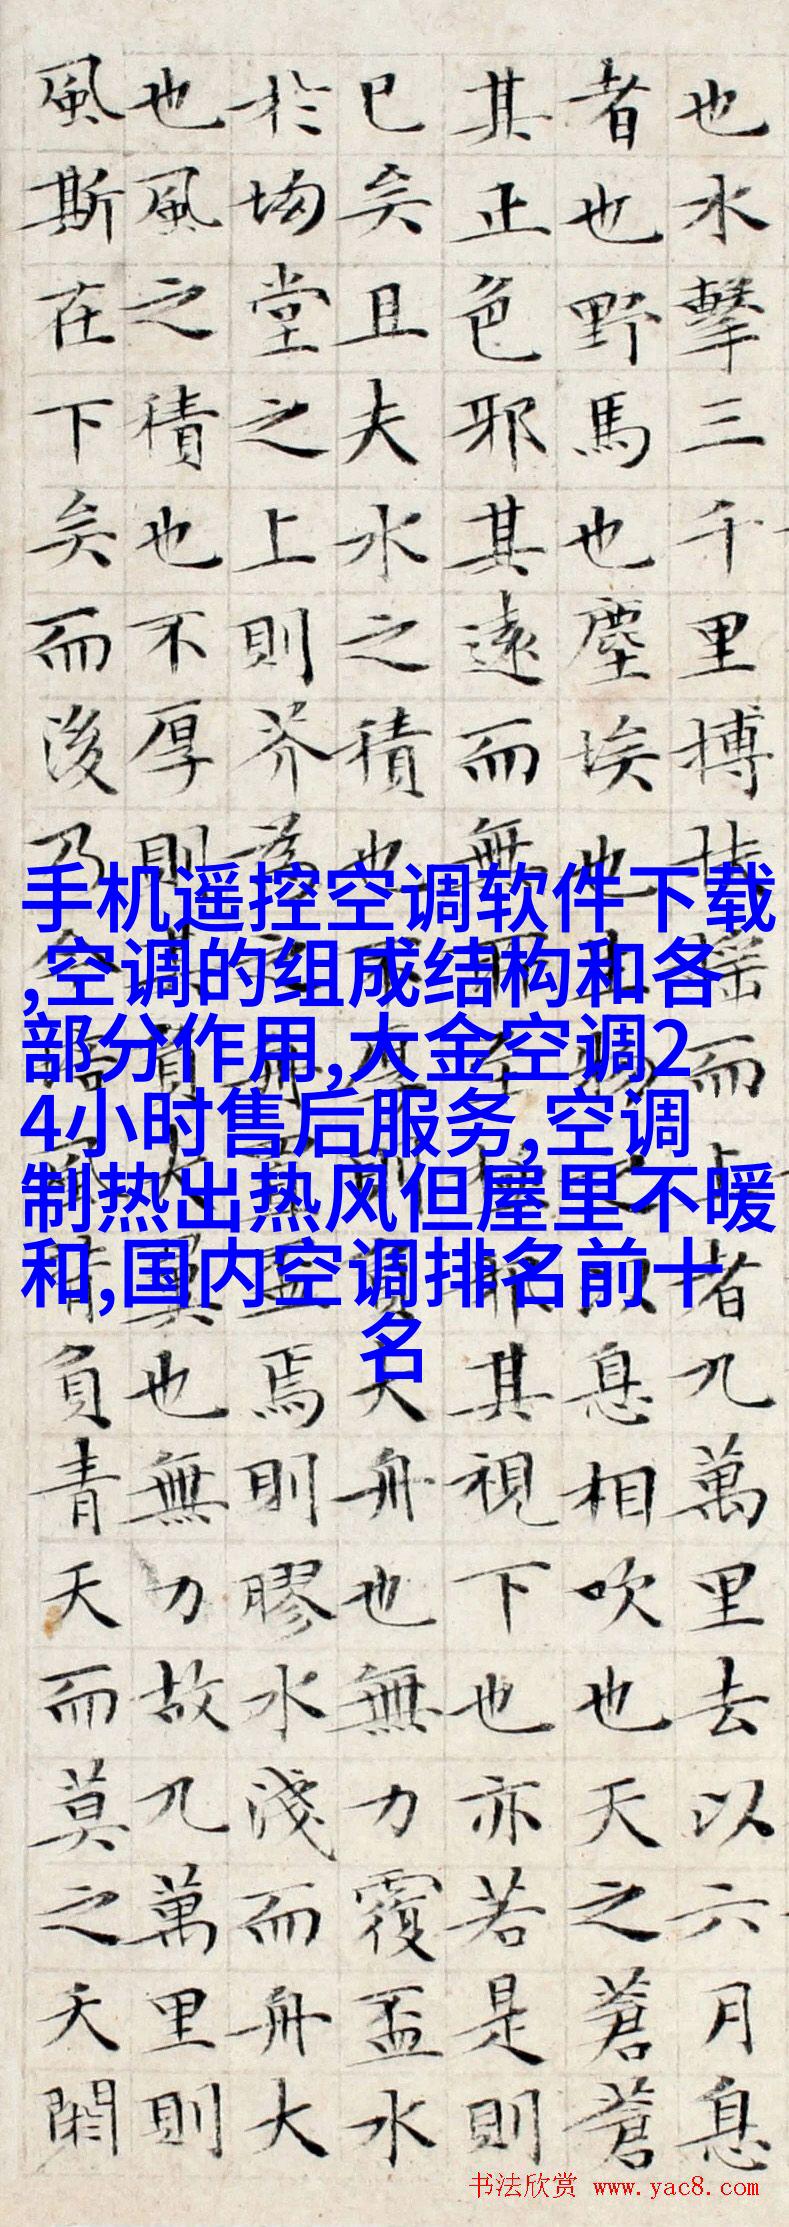 也水擊三千里搏扶搖而上者九萬里去以六月息
者也野馬也塵埃也生物之以息相吹也天之蒼蒼
其正色邪其遠而無所至極邪其視下也亦若是則
已矣且夫水之積也不厚則負大舟也無力覆盃水
於坳堂之上則芥為之舟置盃焉則膠水淺而舟大
也風之積也不厚則其負大翼也無力故九萬里則
風斯在下矣而後乃今培風背負青天而莫之夭閼
手机遥控空调软件下载
,空调的组成结构和各
部分作用,大金空调2
4小时售后服务,空调
制热出热风但屋里不暖
和,国内空调排名前十
名
书法欣赏 www.yac8.com